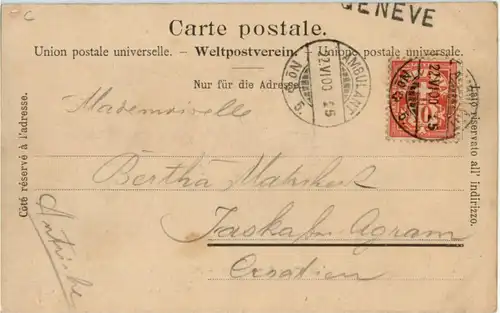 C
GENÈVE
Carte postale.
Union postale universelle. – Weltpostverein. – Unione postale universale.
Nur für die Adresse
AMBULANT
22.VI.00
No 5
Mademoiselle
Bertha
Jaska bei Agram
Croatien
Autriche
Côté réservé à l'adresse.
Lato riservato all' indirizzo.